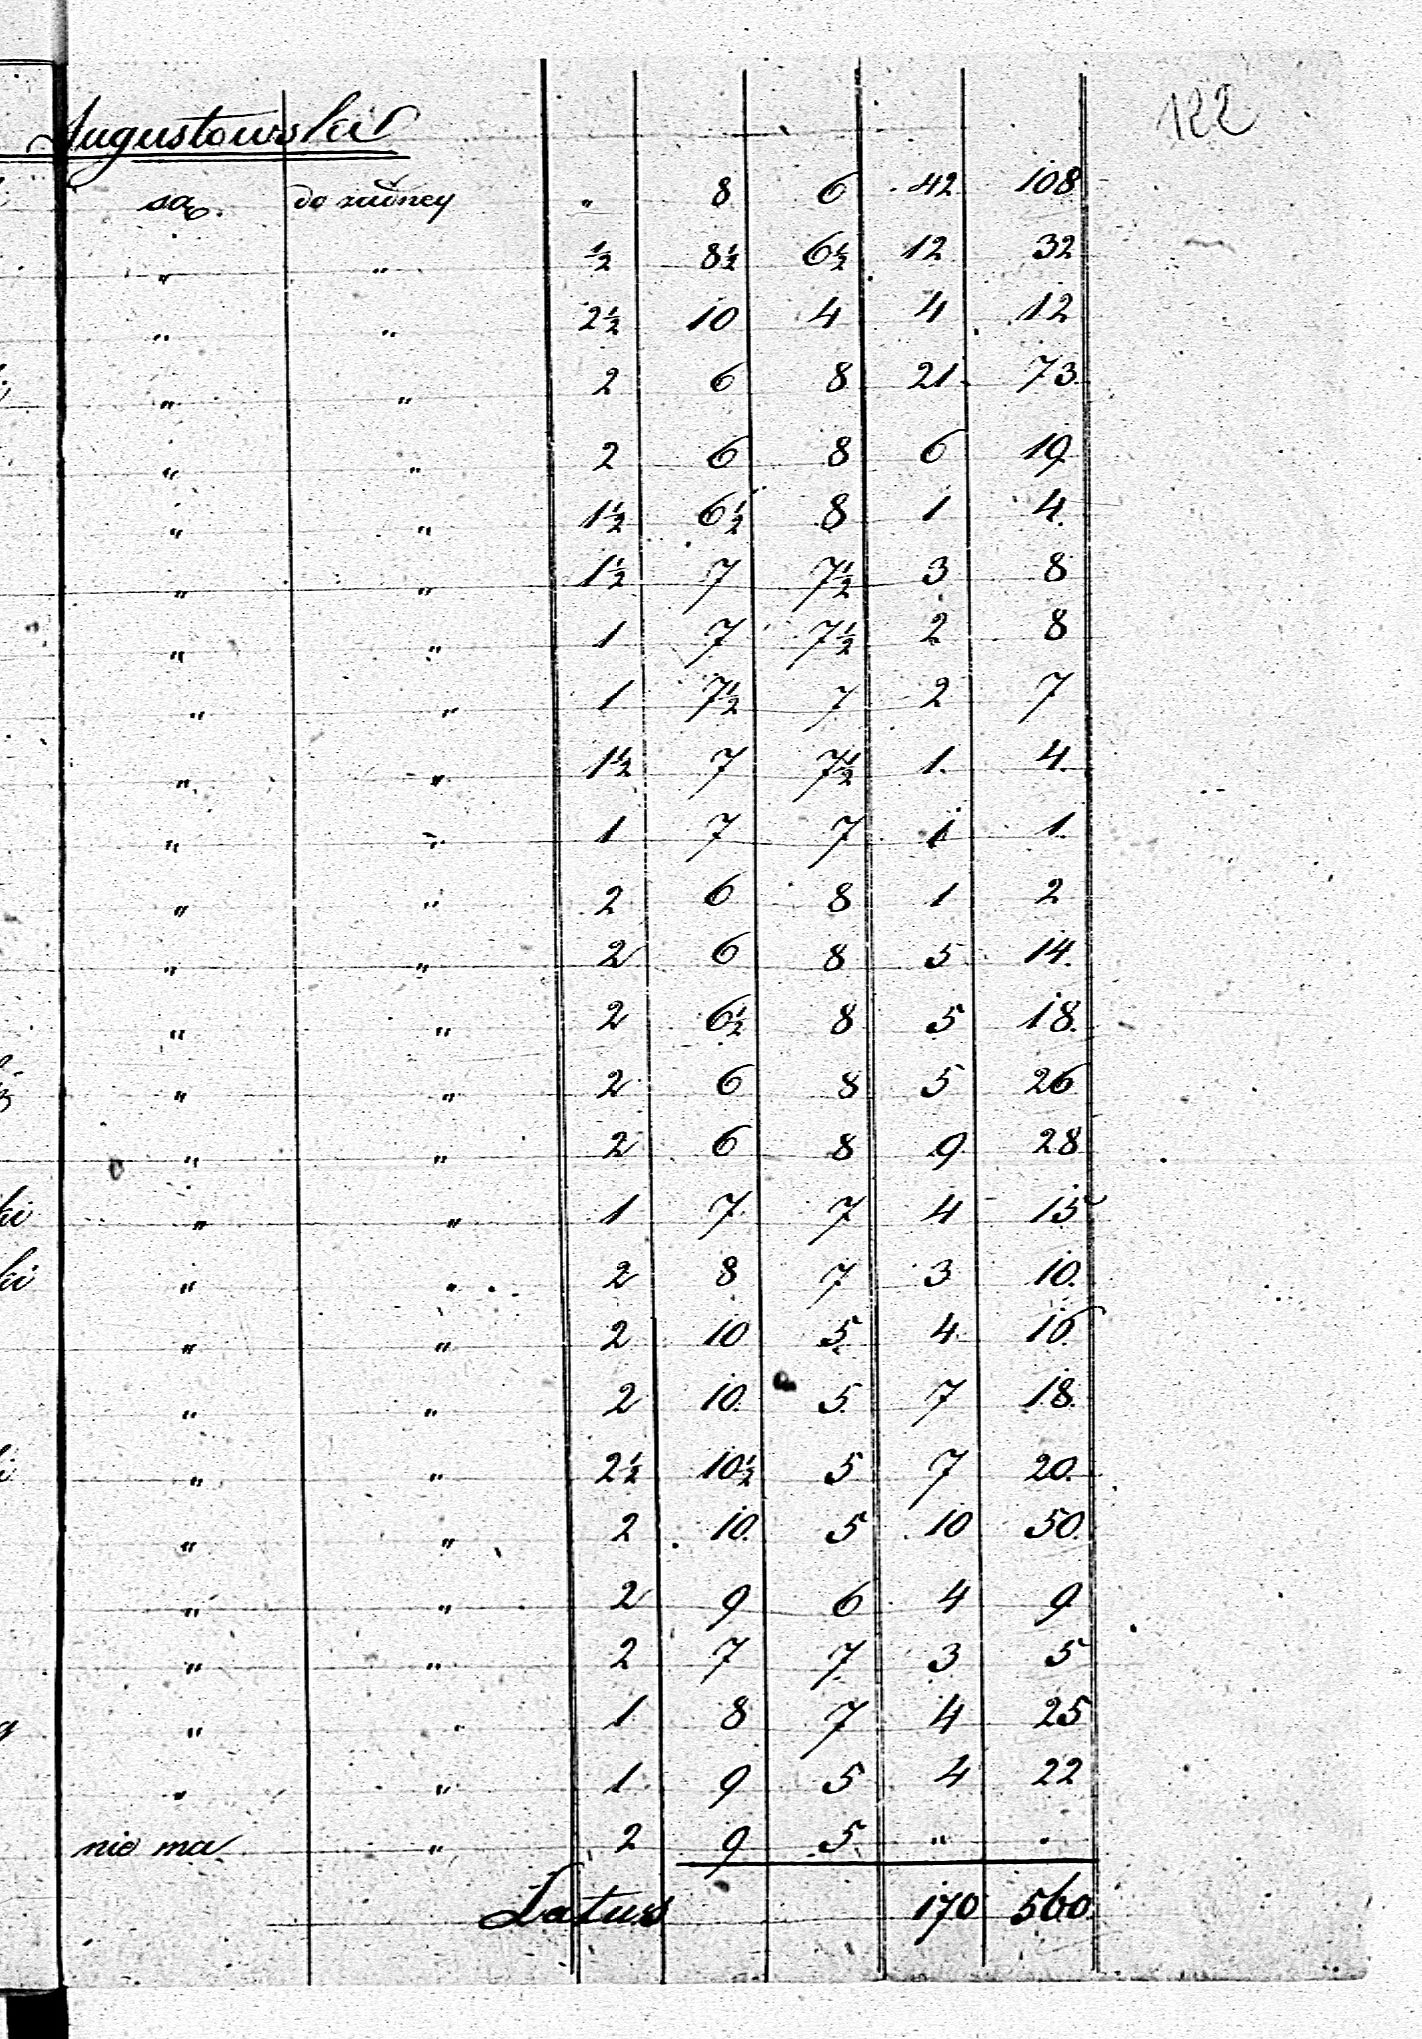 122
Augustowska
są. do żadney „ 8 6 42 108
„ „ ½ 8½ 6½ 12 32
„ „ 2½ 10 4 4 12
„ „ 2 6 8 21 73
„ „ 2 6 8 6 19
„ „ 1½ 6½ 8 1 4
„ „ 1½ 7 7½ 3 8
„ „ 1 7 7½ 2 8
„ „ 1 7½ 7 2 7
„ „ 1½ 7 7½ 1 4
„ „ 1 7 7 1 1
„ „ 2 6 8 1 2
„ „ 2 6 8 5 14
„ „ 2 6½ 8 5 18
„ „ 2 6 8 5 26
„ „ 2 6 8 9 28
ki „ „ 1 7 7 4 15
ki „ „ 2 8 7 3 10
„ „ 2 10 5 4 16
„ „ 2 10 5 7 18
„ „ 2½ 10½ 5 7 20
„ „ 2 10 5 10 50
„ „ 2 9 6 4 9
„ „ 2 7 7 3 5
„ „ 1 8 7 4 25
„ „ 1 9 5 4 22
nie ma „ 2 9 5 „ „
Latus 170 560